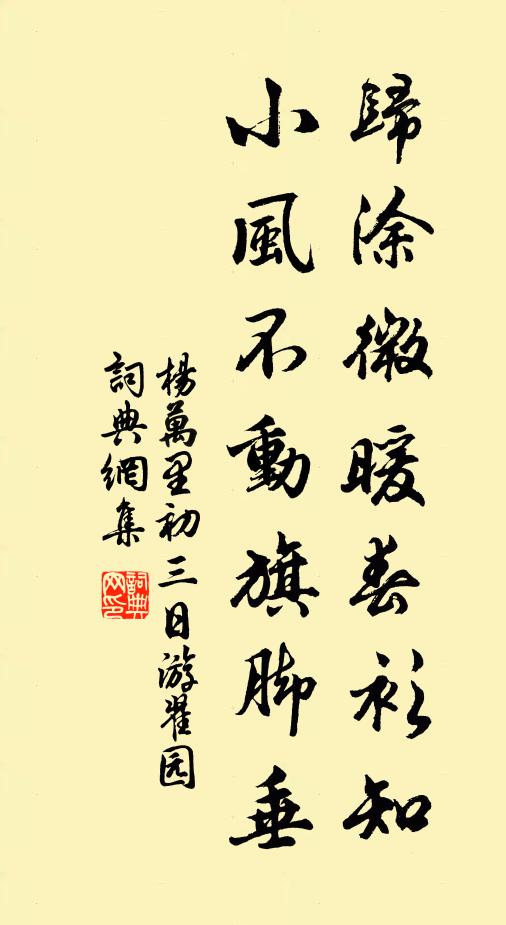 歸涂微暖春衫知
小風不動旗脚垂
楊萬里初三日游瞿园
詞典網集
詞典网印